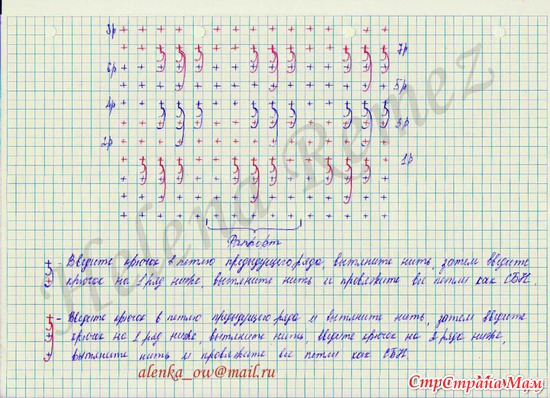 8р
7р
6р
5р
4р
3р
2р
1р
Раппорт
- Введите крючок в петлю предыдущего ряда, вытяните нить, затем введите
крючок на 1 ряд ниже, вытяните нить и провяжите все петли как СБН.
- Введите крючок в петлю предыдущего ряда и вытяните нить, затем введите
крючок на 1 ряд ниже, вытяните нить, введите крючок на 2 ряда ниже,
вытяните нить и провяжите все петли как СБН.
alenka_ow@mail.ru
Helena Remez
СтрСтранаМам